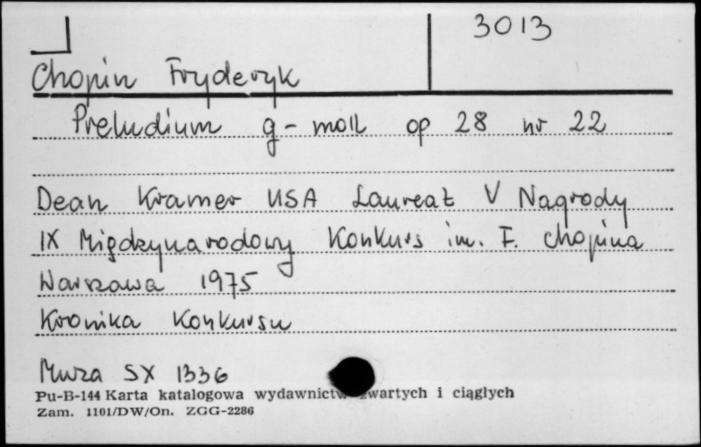 3013
Chopin Fryderyk
Preludium g-moll op 28 nr 22
Dean Kramer USA Laureat V Nagrody
IX Międzynarodowy Konkurs im. F. Chopina
Warszawa 1975
Kronika Konkursu
Muza SX 1336
Pu-B-144 Karta katalogowa wydawnictw zwartych i ciągłych
Zam. 1101/DW/On. ZGG-2286